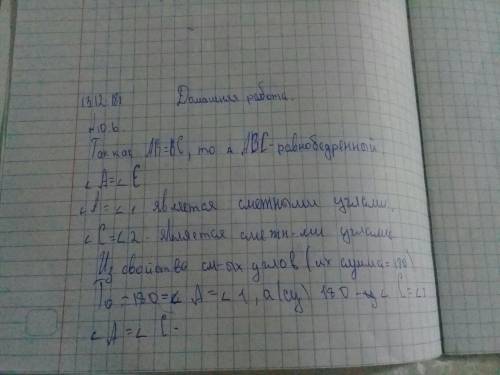 13.12.18г Домашняя работа.
Так как AB=BC, то ABC-равнобедренный
∠A=∠C
∠A=∠1 является смежными углами,
∠C=∠2 - является смежн-ми углами
Из свойства см-ых углов (их сумма=180)
То =180=∠A=∠1, а 180-∠C=∠2
∠A=∠C-